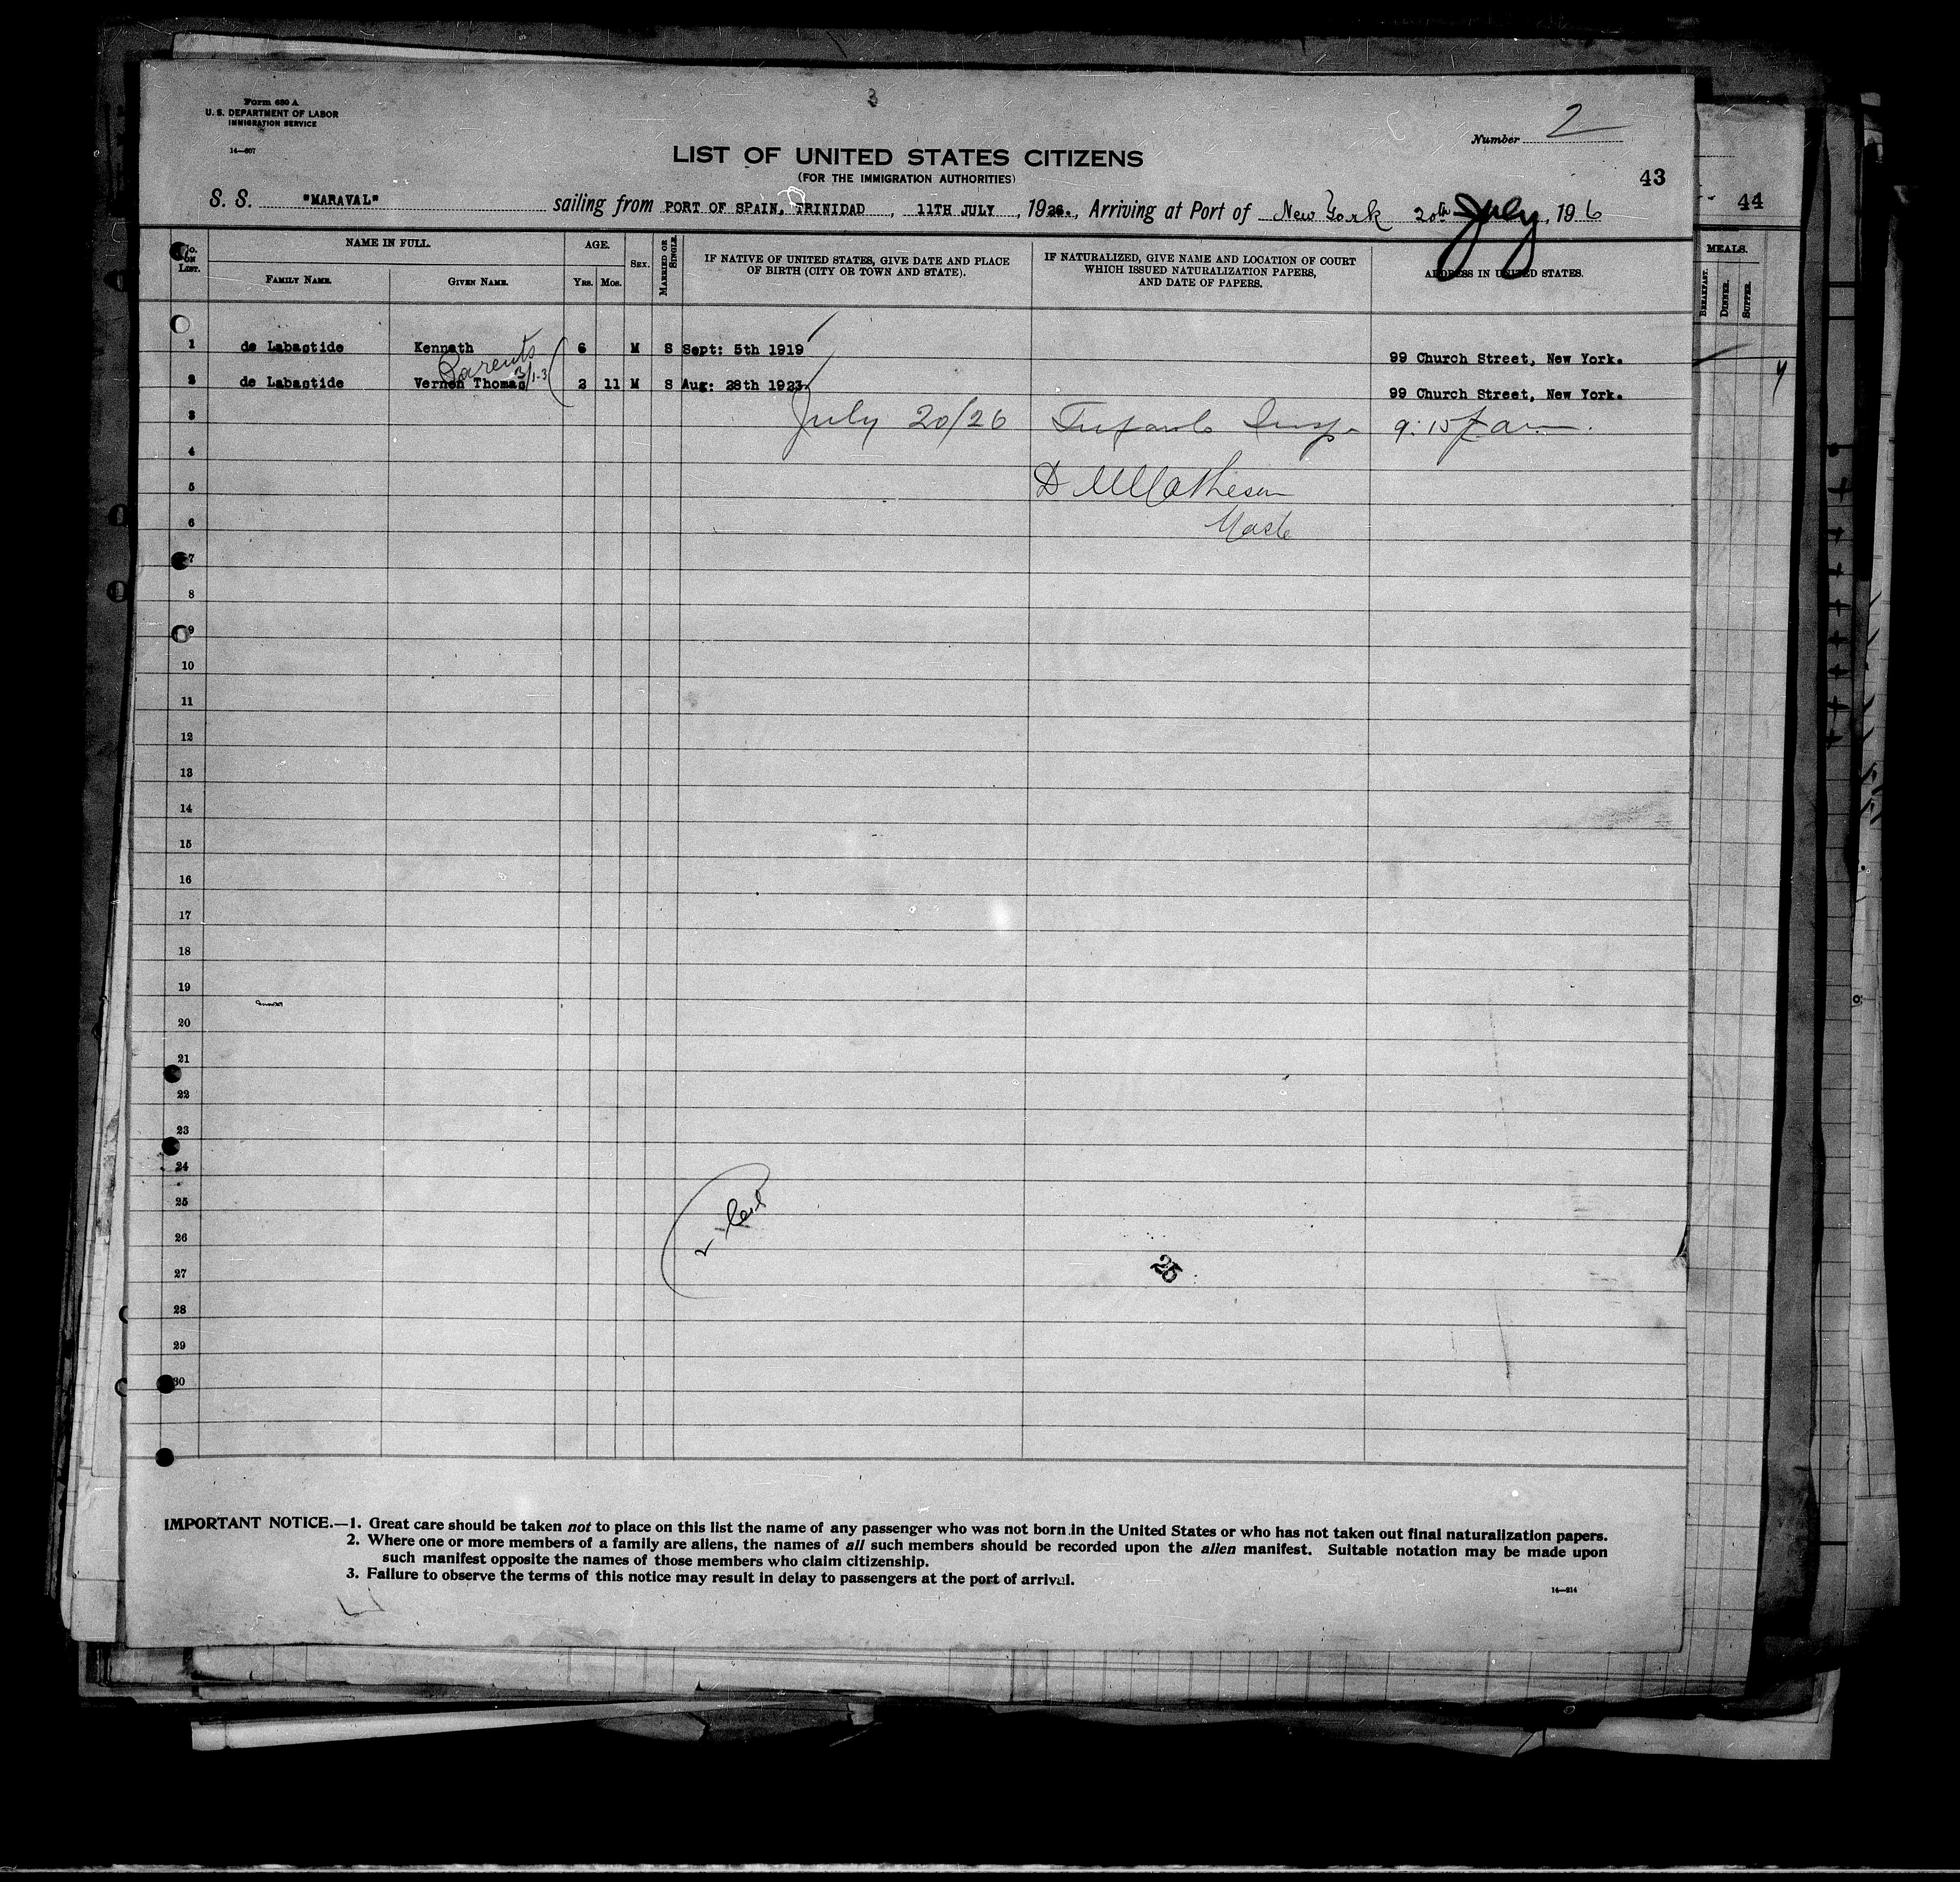 3
Form 630 A
U. S. DEPARTMENT OF LABOR
IMMIGRATION SERVICE
14—607
Number 2
LIST OF UNITED STATES CITIZENS
(FOR THE IMMIGRATION AUTHORITIES)
43
S. S. "MARAVAL" sailing from PORT OF SPAIN, TRINIDAD, 11TH JULY, 1926., Arriving at Port of New York 20th July, 19 6
44
No. ON LIST.
NAME IN FULL.
FAMILY NAME. GIVEN NAME.
AGE.
YRS. MOS.
SEX.
MARRIED OR SINGLE.
IF NATIVE OF UNITED STATES, GIVE DATE AND PLACE
OF BIRTH (CITY OR TOWN AND STATE).
IF NATURALIZED, GIVE NAME AND LOCATION OF COURT
WHICH ISSUED NATURALIZATION PAPERS,
AND DATE OF PAPERS.
ADDRESS IN UNITED STATES.
MEALS.
BREAKFAST.
DINNER.
SUPPER.
1 de Labastide Kennath 6 M S Sept: 5th 1919 99 Church Street, New York.
Parents 3/1-3
2 de Labastide Vernon Thomas 2 11 M S Aug: 28th 1923 99 Church Street, New York.
3 July 20/26 Insp. 9:15 am.
4
5 D Matheson
6
7
8
9
10
11
12
13
14
15
16
17
18
19
20
21
22
23
24
25
26
27
28
29
30
25
IMPORTANT NOTICE.—1. Great care should be taken not to place on this list the name of any passenger who was not born in the United States or who has not taken out final naturalization papers.
2. Where one or more members of a family are aliens, the names of all such members should be recorded upon the alien manifest. Suitable notation may be made upon
such manifest opposite the names of those members who claim citizenship.
3. Failure to observe the terms of this notice may result in delay to passengers at the port of arrival.
14—214